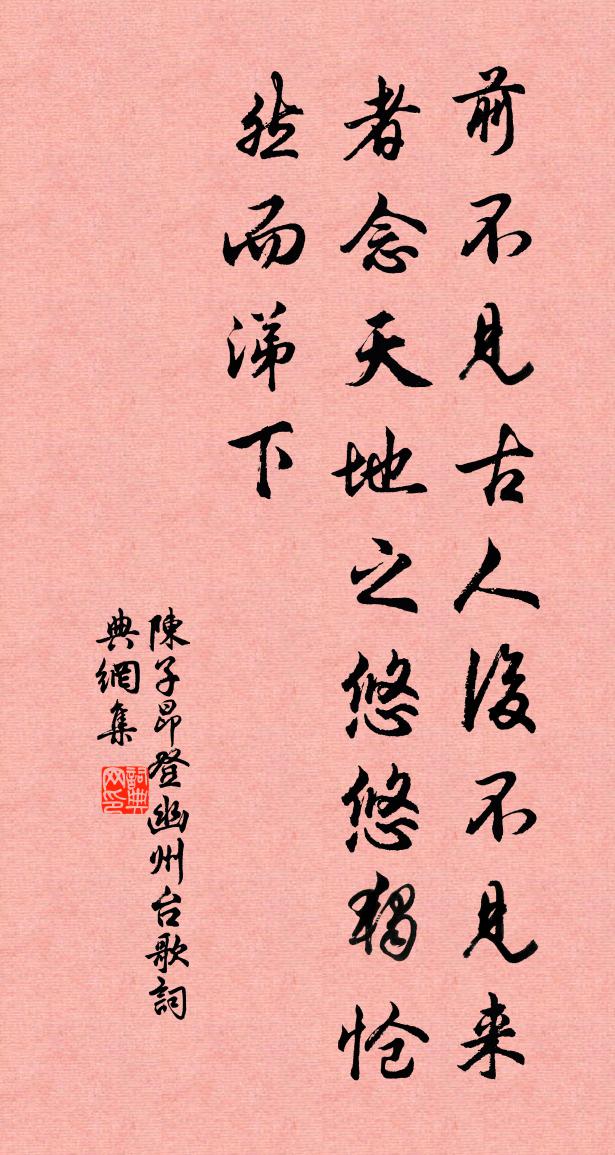 前不見古人後不見来
者念天地之悠悠獨怆
然而涕下
陳子昂登幽州台歌詞
典網集
詞典网印